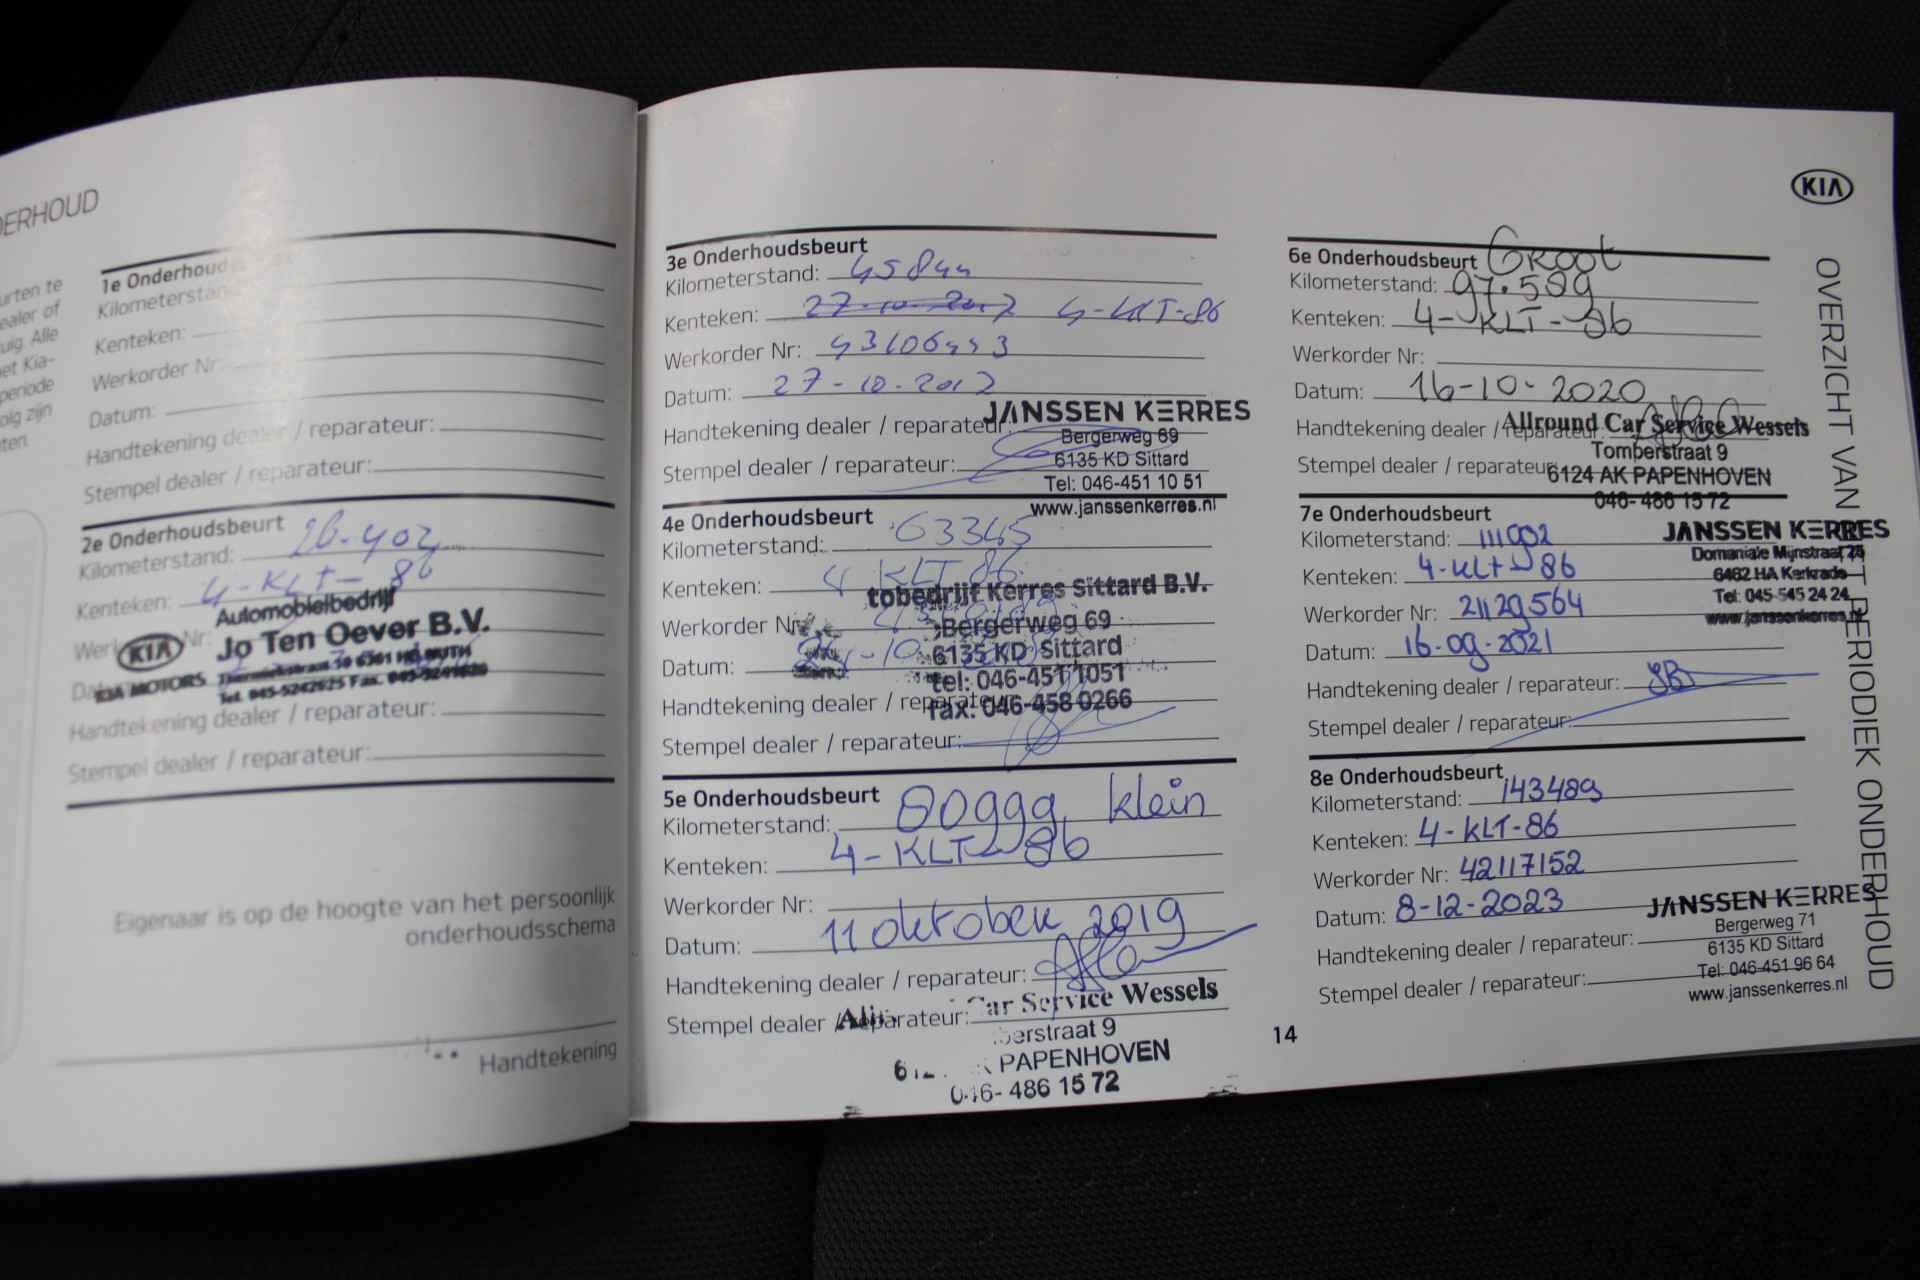 DERHOUD
urten te
ealer of
uig. Alle
et Kia-
periode
olg zijn
ten.
1e Onderhoud
Kilometerstan
Kenteken:
Werkorder Nr
Datum:
Handtekening dealer / reparateur:
Stempel dealer / reparateur:
2e Onderhoudsbeurt
Kilometerstand: 26.402
Kenteken: 4-KLT-86
Automobielbedrijf
KIA Jo Ten Oever B.V.
KIA MOTORS
Handtekening dealer / reparateur:
Stempel dealer / reparateur:
Eigenaar is op de hoogte van het persoonlijk
onderhoudsschema
Handtekening
3e Onderhoudsbeurt
Kilometerstand: 45844
Kenteken: 27-10-2017 4-KLT-86
Werkorder Nr: 43106443
Datum: 27-10-2017
JANSSEN KERRES
Handtekening dealer / reparateur:
Bergerweg 69
6135 KD Sittard
Stempel dealer / reparateur:
Tel: 046-451 10 51
www.janssenkerres.nl
4e Onderhoudsbeurt
Kilometerstand: 63345
Kenteken: 4 KLT 86
tobedrijf Kerres Sittard B.V.
Werkorder Nr
Bergerweg 69
6135 KD Sittard
Datum:
tel: 046-451 1051
Handtekening dealer / reparateur
fax: 046-458 0266
Stempel dealer / reparateur:
5e Onderhoudsbeurt
Kilometerstand: 80999 klein
Kenteken: 4-KLT-86
Werkorder Nr:
Datum: 11 oktober 2019
Handtekening dealer / reparateur:
Car Service Wessels
Stempel dealer / reparateur:
erstraat 9
PAPENHOVEN
046- 486 15 72
14
KIA
6e Onderhoudsbeurt Groot
Kilometerstand: 97.589
Kenteken: 4-KLT-86
Werkorder Nr:
Datum: 16-10-2020
Allround Car Service Wessels
Handtekening dealer / reparateur:
Tomperstraat 9
Stempel dealer / reparateur
6124 AK PAPENHOVEN
046- 486 15 72
7e Onderhoudsbeurt
JANSSEN KERRES
Kilometerstand: 111902
Domaniale Mijnstraat 25
Kenteken: 4-KLT-86
6462 HA Kerkrade
Tel: 045-545 24 24
Werkorder Nr: 21129564
www.janssenkerres.nl
Datum: 16-09-2021
Handtekening dealer / reparateur:
Stempel dealer / reparateur:
8e Onderhoudsbeurt
Kilometerstand: 143489
Kenteken: 4-KLT-86
Werkorder Nr: 42117152
Datum: 8-12-2023
JANSSEN KERRES
Bergerweg 71
Handtekening dealer / reparateur:
6135 KD Sittard
Tel: 046-451 96 64
Stempel dealer / reparateur:
www.janssenkerres.nl
OVERZICHT VAN HET PERIODIEK ONDERHOUD